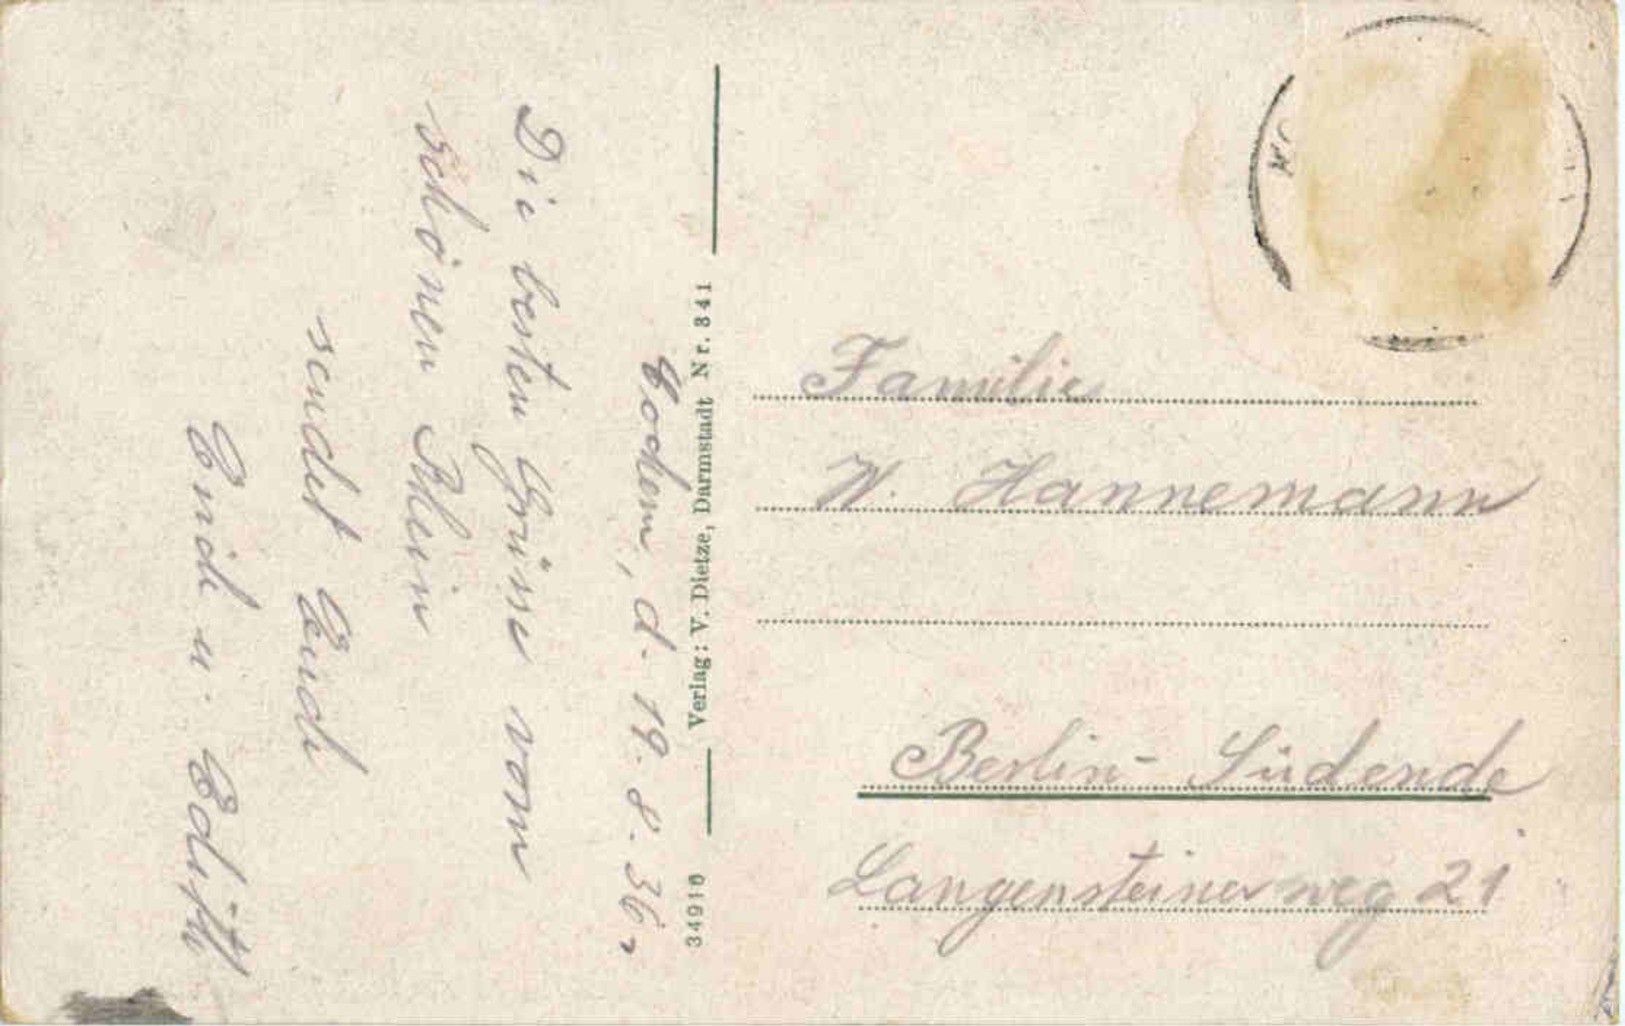 Cochem, d. 19. 8. 36,
Die besten Grüsse vom
schönen Rhein
sendet
u. Edith
Verlag: V. Dietze, Darmstadt Nr. 341
34910
Familie
W. Hannemann
Berlin-Südende
Langensteinerweg 21